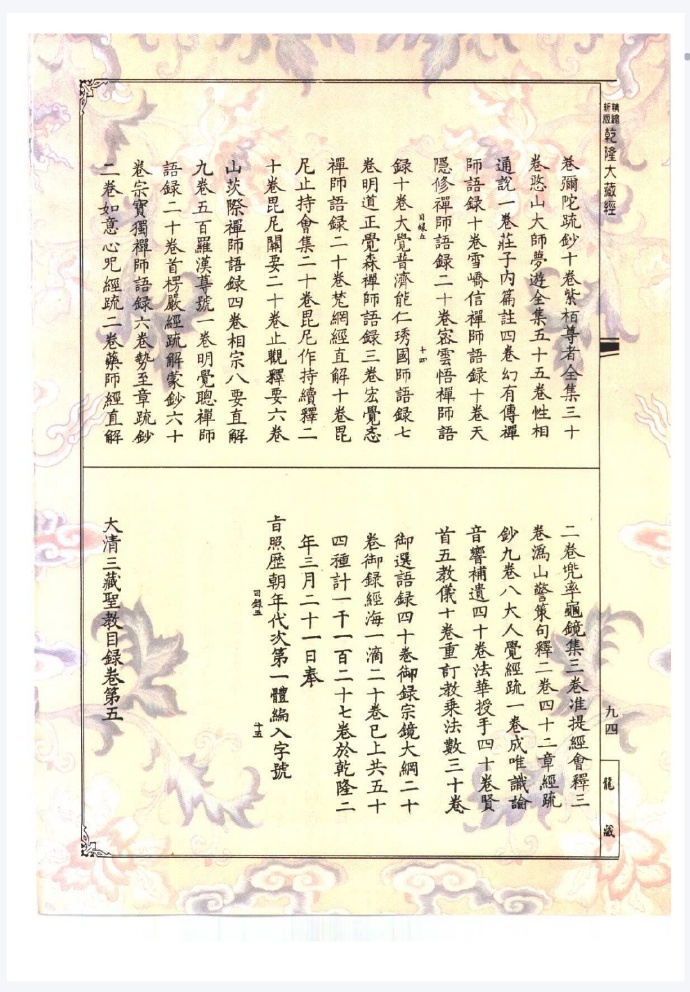 精縮新版
乾隆大藏經
卷彌陀疏鈔十卷紫栢尊者全集三十
卷憨山大師夢遊全集五十五卷性相
通說一卷莊子內篇註四卷幻有傳禪
師語録十卷雪嶠信禪師語録十卷天
隱修禪師語録二十卷宻雲悟禪師語
目録五
十四
録十卷大覺普濟能仁琇國師語録七
卷明道正覺森禪師語録三卷宏覺忞
禪師語録二十卷梵網經直解十卷毘
尼止持會集二十卷毘尼作持續釋二
十卷毘尼關要二十卷止觀釋要六卷
山茨際禪師語録四卷相宗八要直解
九卷五百羅漢尊號一卷明覺聰禪師
語録二十卷首楞嚴經疏解蒙鈔六十
卷宗寶獨禪師語録六卷勢至章疏鈔
二卷如意心咒經疏二卷藥師經直解
二卷兜率龜鏡集三卷准提經會釋三
卷溈山警策句釋二卷四十二章經疏
鈔九卷八大人覺經疏一卷成唯識論
音響補遺四十卷法華授手四十卷賢
首五教儀十卷重訂教乘法數三十卷
御選語録四十卷御録宗鏡大綱二十
卷御録經海一滴二十卷已上共五十
四種計一千一百二十七卷於乾隆二
年三月二十一日奉
旨照歷朝年代次第一體編入字號
目録五
十五
大清三藏聖教目録卷第五
九四
龍藏